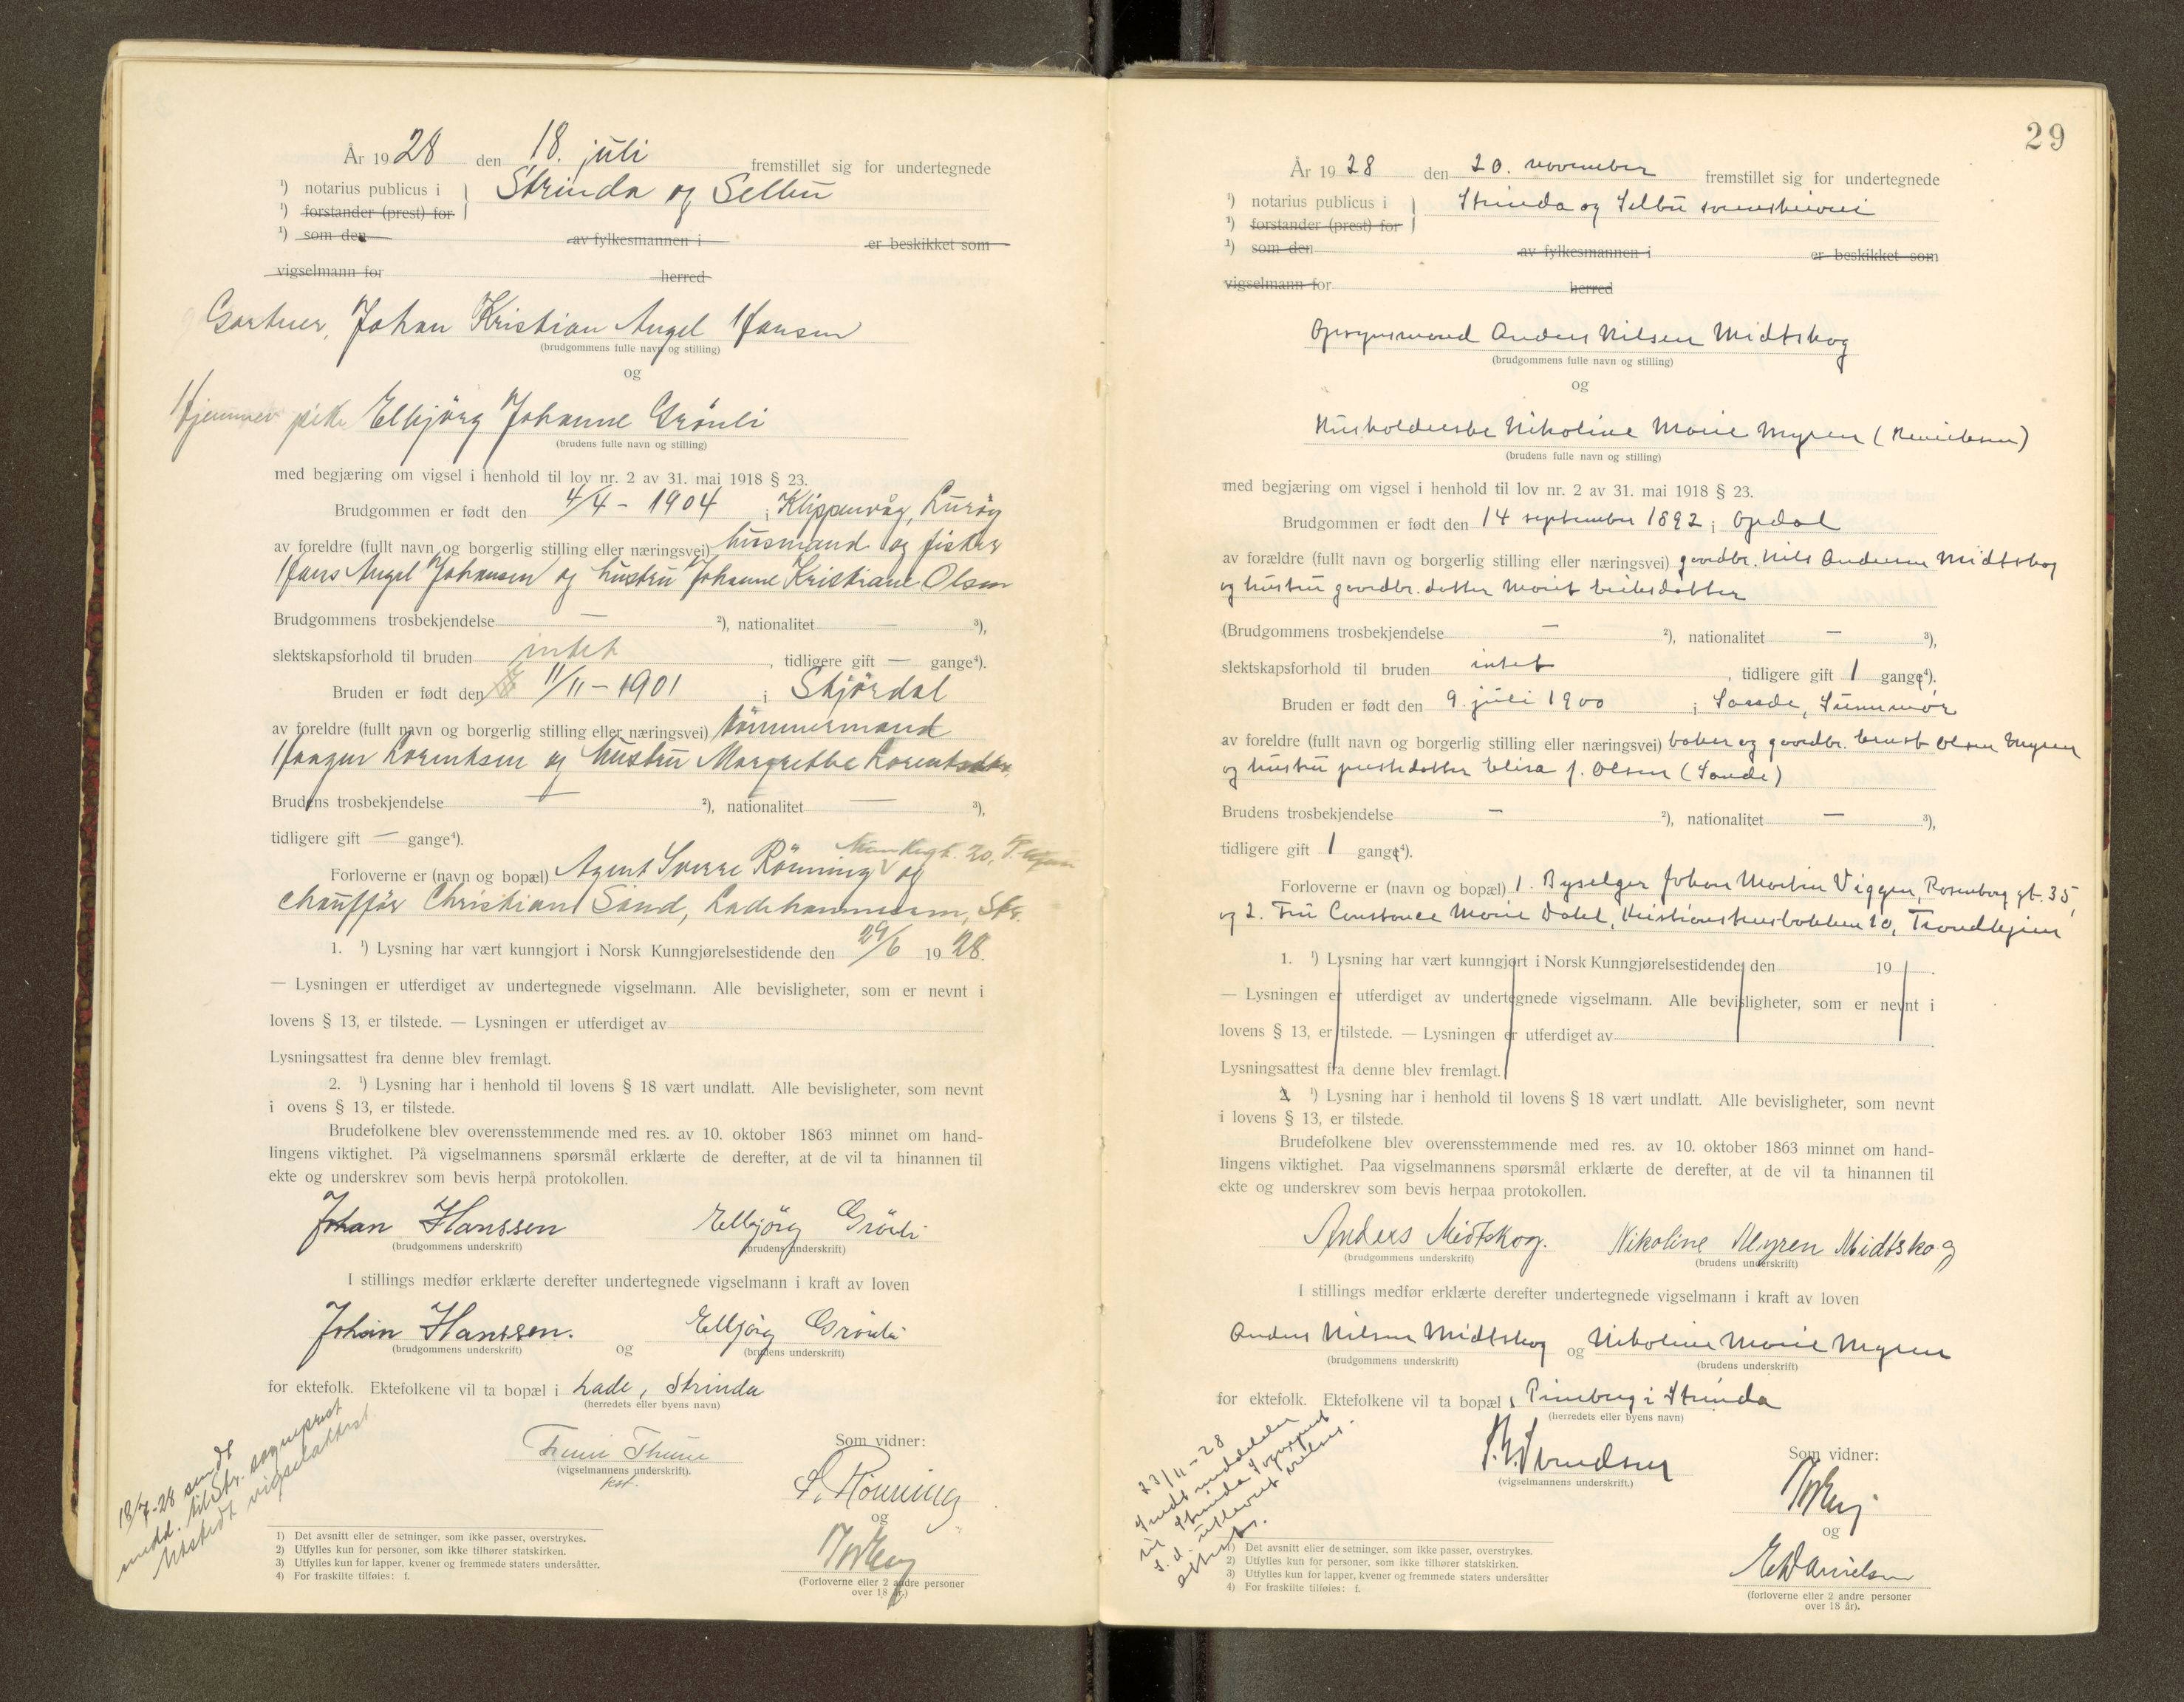 År 1928 den 18. juli fremstillet sig for undertegnede
¹) notarius publicus i Strinda og Selbu
¹) forstander (prest) for
¹) som den av fylkesmannen i er beskikket som
vigselmann for herred
Gartner, Johan Kristian Angel Hansen
(brudgommens fulle navn og stilling)
og
Hjemmev pike Elbjörg Johanne Grönli
(brudens fulle navn og stilling)
med begjæring om vigsel i henhold til lov nr. 2 av 31. mai 1918 § 23.
Brudgommen er født den 4/4 - 1904 i Klippenvåg, Luröy
av foreldre (fullt navn og borgerlig stilling eller næringsvei) husmand og fisker
Hans Angel Johansen og hustru Johanne Kristiane Olsen
Brudgommens trosbekjendelse — ²), nationalitet — ³),
slektskapsforhold til bruden intet, tidligere gift — gange⁴).
Bruden er født den 11/11 - 1901 i Stjördal
av foreldre (fullt navn og borgerlig stilling eller næringsvei) tömmermand
Haagen Lorentsen og hustru Margrethe Lorentsdtr.
Brudens trosbekjendelse — ²), nationalitet — ³),
tidligere gift — gange⁴).
Munkegt. 20, T.hjem
Forloverne er (navn og bopæl) Agent Sverre Rönning og
chaufför Christian Sand, Ladehammeren, Str.
1. ¹) Lysning har vært kunngjort i Norsk Kunngjørelsestidende den 29/6 1928.
— Lysningen er utferdiget av undertegnede vigselmann. Alle bevisligheter, som er nevnt i
lovens § 13, er tilstede. — Lysningen er utferdiget av
Lysningsattest fra denne blev fremlagt.
2. ¹) Lysning har i henhold til lovens § 18 vært undlatt. Alle bevisligheter, som nevnt
i ovens § 13, er tilstede.
Brudefolkene blev overensstemmende med res. av 10. oktober 1863 minnet om hand-
lingens viktighet. På vigselmannens spørsmål erklærte de derefter, at de vil ta hinannen til
ekte og underskrev som bevis herpå protokollen.
Johan Hanssen Elbjörg Grönli
(brudgommens underskrift) (brudens underskrift)
I stillings medfør erklærte derefter undertegnede vigselmann i kraft av loven
Johan Hanssen. og Elbjörg Grönli
(brudgommens underskrift) (brudens underskrift)
for ektefolk. Ektefolkene vil ta bopæl i Lade, Strinda
(herredets eller byens navn)
18/7-28 sendt
medd. til Str. sogneprest
Utstedt vigselattest
Thune
(vigselmannens underskrift).
kst.
Som vidner:
S. Rönning
og
(Forloverne eller 2 andre personer
over 18 år.)
1) Det avsnitt eller de setninger, som ikke passer, overstrykes.
2) Utfylles kun for personer, som ikke tilhører statskirken.
3) Utfylles kun for lapper, kvener og fremmede staters undersåtter.
4) For fraskilte tilføies: f.
29
År 1928 den 20. november fremstillet sig for undertegnede
¹) notarius publicus i Strinda og Selbu sorenskriveri
¹) forstander (prest) for
¹) som den av fylkesmannen i er beskikket som
vigselmann for herred
Opsynsmand Anders Nilsen Midtskog
(brudgommens fulle navn og stilling)
og
Husholderske Nikoline Marie Myren (Henriksen)
(brudens fulle navn og stilling)
med begjæring om vigsel i henhold til lov nr. 2 av 31. mai 1918 § 23.
Brudgommen er født den 14 september 1892 i Opdal
av forældre (fullt navn og borgerlig stilling eller næringsvei) gaardbr. Nils Andersen Midtskog
og hustru gaardbr. datter Marit Eriksdatter
(Brudgommens trosbekjendelse — ²), nationalitet — ³),
slektskapsforhold til bruden intet, tidligere gift 1 gang⁴).
Bruden er født den 9. juli 1900 i Sande, Sunnmör
av foreldre (fullt navn og borgerlig stilling eller næringsvei) baker og gaardbr. Ernst Olsen Myren
og hustru prestedatter Elisa f. Olsen (Sande)
Brudens trosbekjendelse — ²), nationalitet — ³),
tidligere gift 1 gang⁴).
Forloverne er (navn og bopæl) 1. Byselger Johan Martin Viggen, Rosenborg gt. 35,
og 2. Fru Constance Marie Dahl, Kristianstensbakken 10, Trondhjem
1. ¹) Lysning har vært kunngjort i Norsk Kunngjørelsestidende den 19 .
— Lysningen er utferdiget av undertegnede vigselmann. Alle bevisligheter, som er nevnt i
lovens § 13, er tilstede. — Lysningen er utferdiget av .
Lysningsattest fra denne blev fremlagt.
2 ¹) Lysning har i henhold til lovens § 18 vært undlatt. Alle bevisligheter, som nevnt
i lovens § 13, er tilstede.
Brudefolkene blev overensstemmende med res. av 10. oktober 1863 minnet om hand-
lingens viktighet. Paa vigselmannens spørsmål erklærte de derefter, at de vil ta hinannen til
ekte og underskrev som bevis herpaa protokollen.
Anders Midtskog. Nikoline Myren Midtskog
(brudgommens underskrift) (brudens underskrift)
I stillings medfør erklærte derefter undertegnede vigselmann i kraft av loven
Anders Nilsen Midtskog og Nikoline Marie Myren
(brudgommens underskrift) (brudens underskrift)
for ektefolk. Ektefolkene vil ta bopæl i Pineberg i Strinda
(herredets eller byens navn)
23/11-28
Sendt meddelelse
til Strinda sogneprest
s.d. utlevert vielses-
attest.
(vigselmannens underskrift.)
Som vidner:
og
E Danielsen
(forloverne eller 2 andre personer
over 18 år).
1) Det avsnitt eller de setninger, som ikke passer, overstrykes.
2) Utfylles kun for personer, som ikke tilhører statskirken.
3) Utfylles kun for lapper, kvener og fremmede staters undersåtter
4) For fraskilte tilføies: f.